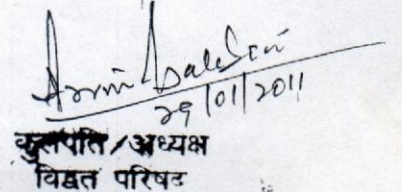 29/01/2011
कुलपति / अध्यक्ष
विद्वत परिषद